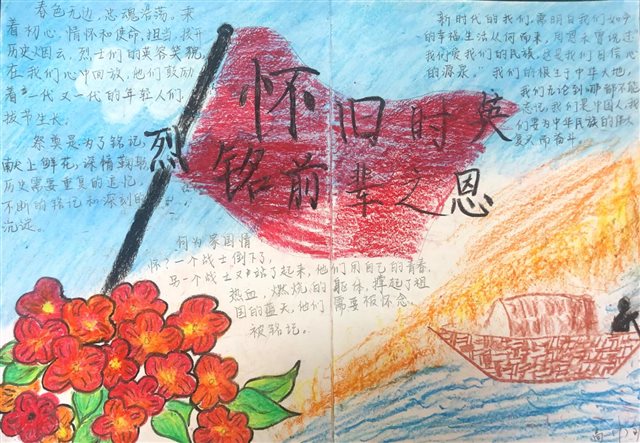 春色无边，忠魂浩荡。乘
着初心、情怀和使命、担当，拨开
历史烟云，烈士们的英容笑貌，
在我们心中回放，他们鼓励
着一代又一代的年轻人们，
拔节生长。
祭奠是为了铭记，
献上鲜花，深情
历史需要重复的追忆，
不断的铭记和深刻的
沉淀。
新时代的我们，需明白我们如今
的幸福生活从何而来，用
我们爱我们的民族，这是我们自信心
的源泉。我们的根生于中华大地，
我们无论到哪都不能
忘记，我们是中国人，
们要为中华民族的伟大
复兴而奋斗。
怀旧时英
烈
铭前辈之恩
何为家国情
怀？一个战士倒下了，
另一个战士又站了起来，他们用自己的青春、
热血，燃烧的躯体，撑起了祖
国的蓝天，他们需要被怀念，
被铭记。